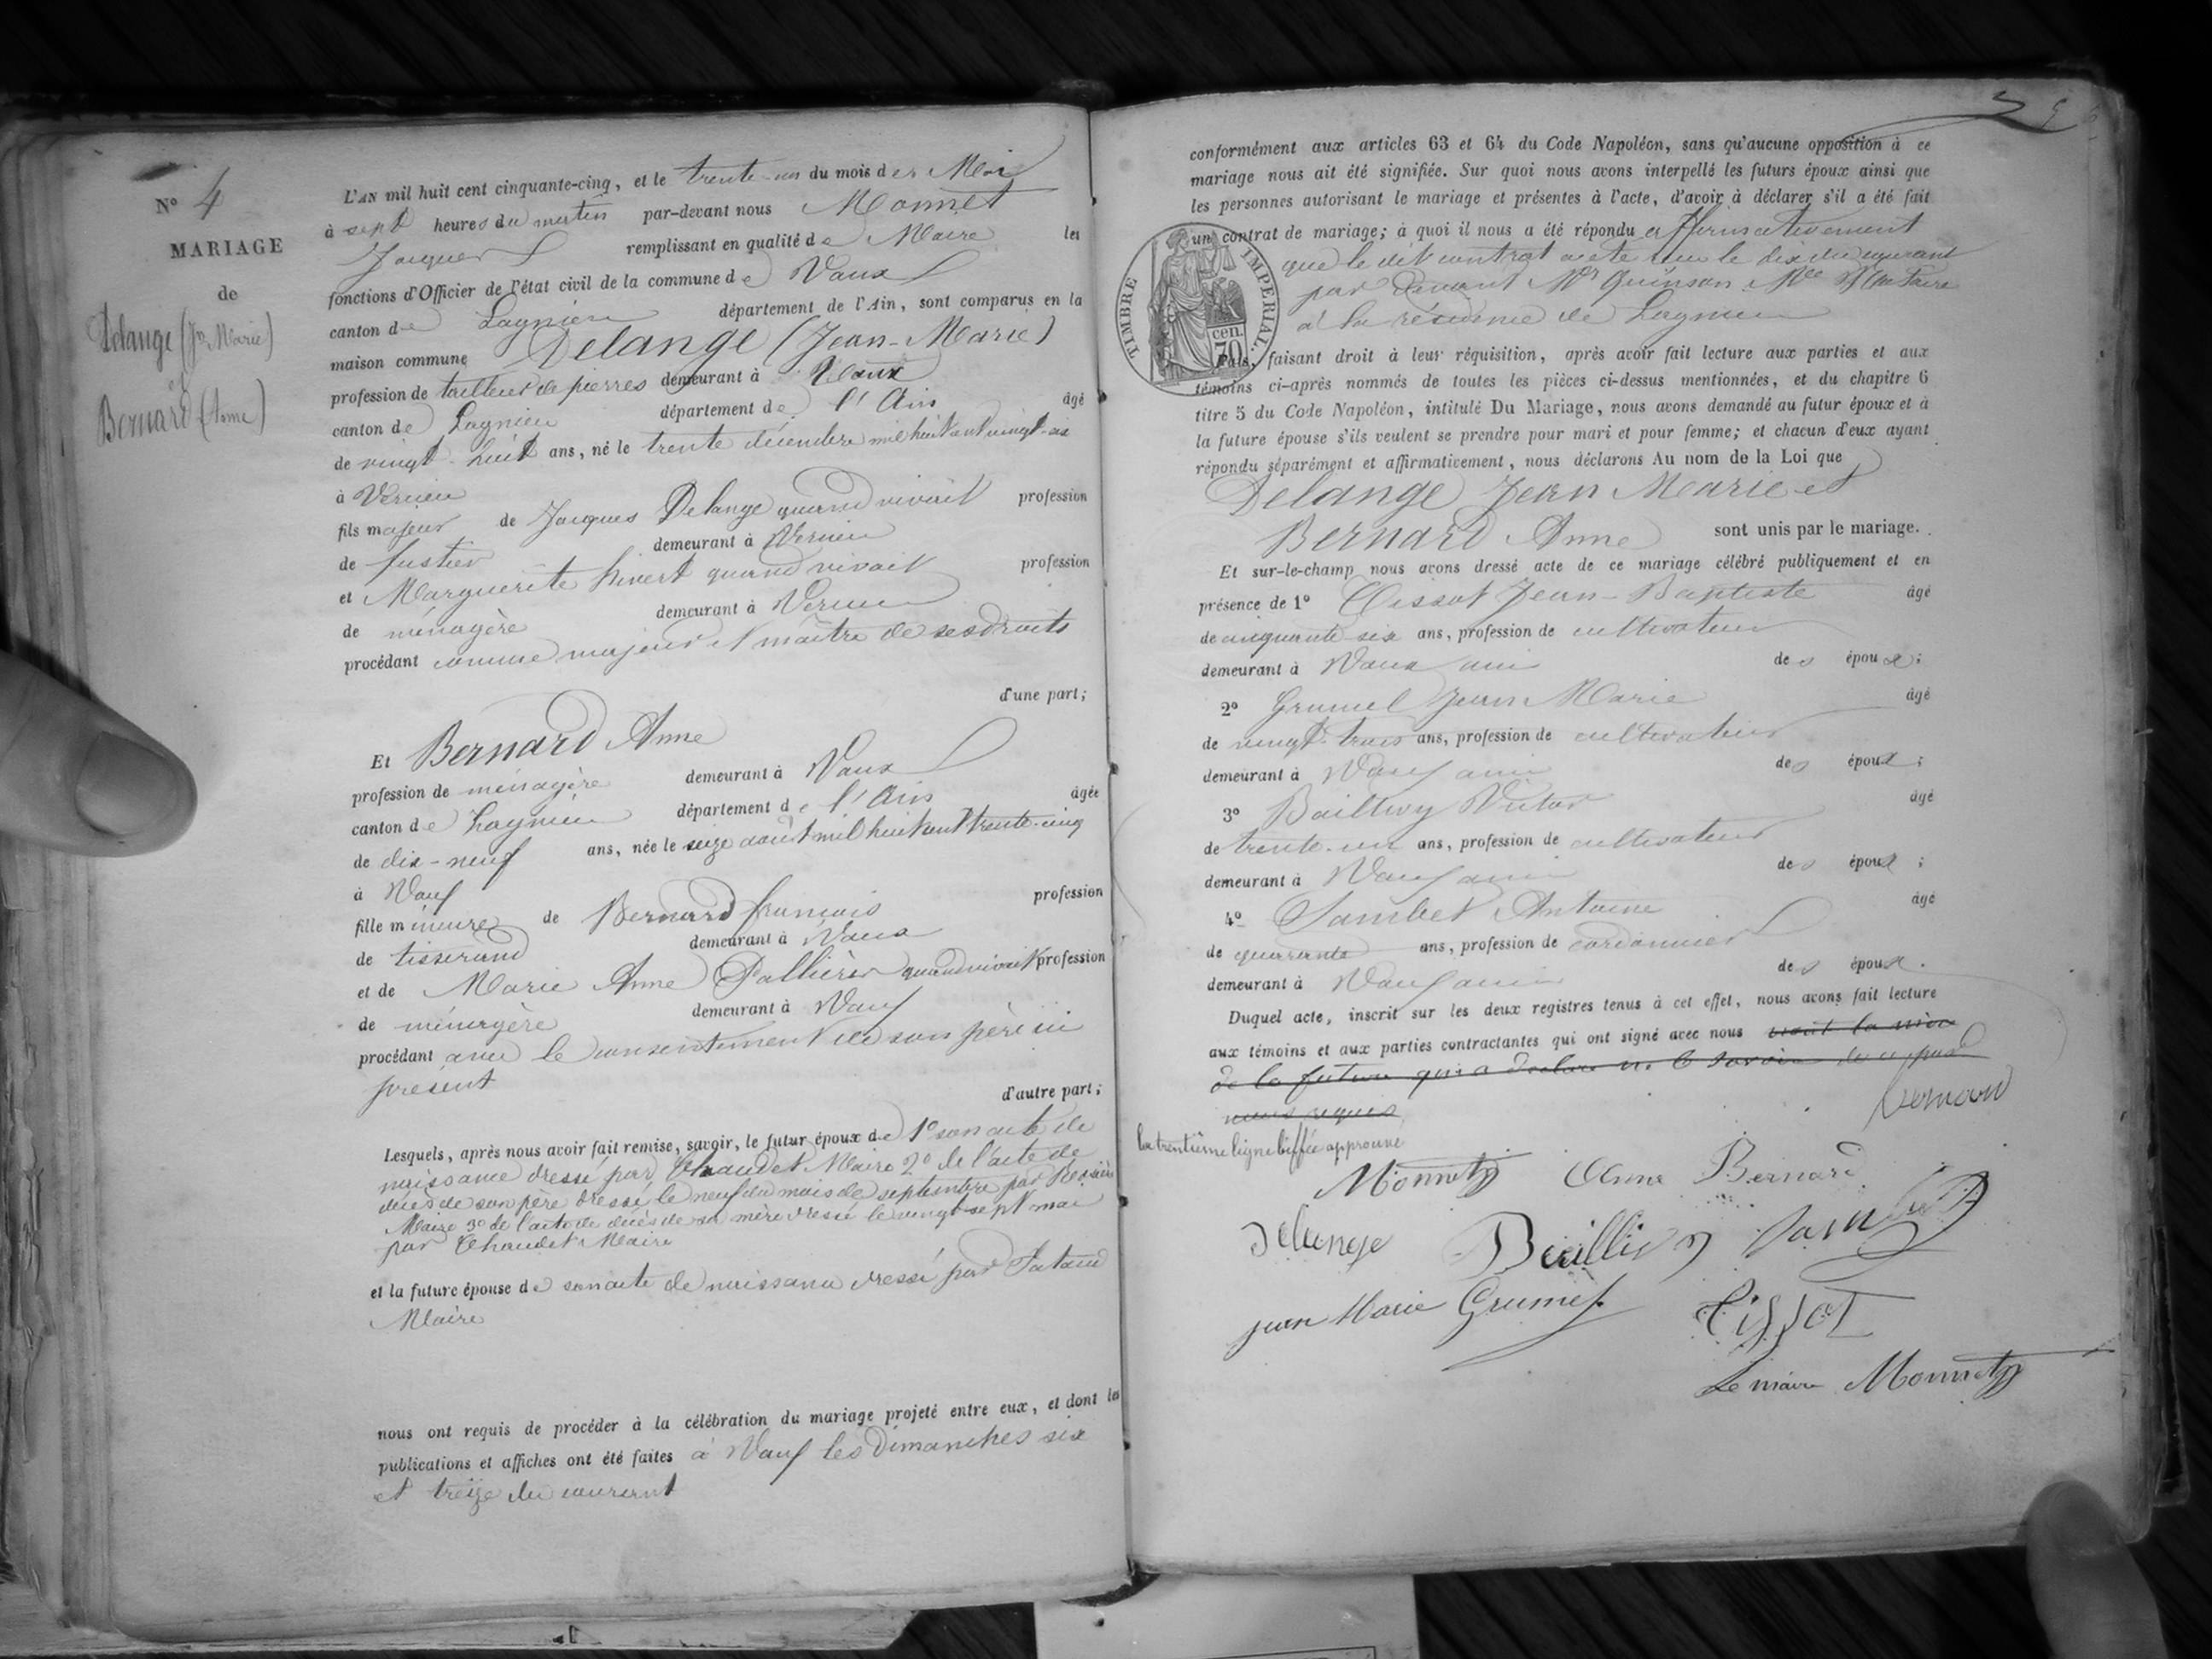 N° 4
MARIAGE
de
Delange (Jn Marie)
et
Bernard (Anne)
L'AN mil huit cent cinquante-cinq, et le trente-un du mois de Mai
à sept heures du matin par-devant nous Monnet
Jacques remplissant en qualité de Maire les
fonctions d'Officier de l'état civil de la commune de Vaux
canton de Lagnieu département de l'Ain, sont comparus en la
maison commune Delange (Jean-Marie)
profession de tailleur de pierres demeurant à Vaux
canton de Lagnieu département de l'Ain âgé
de vingt-huit ans, né le trente décembre mil huit cent vingt-six
à Verieu
fils majeur de Jacques Delange quand vivait profession
de fustier demeurant à Verieu
et Marguerite hivert quand vivait profession
de ménagère demeurant à Verieu
procédant comme majeur et maître de ses droits
d'une part;
Et Bernard Anne
profession de ménagère demeurant à Vaux
canton de Lagnieu département de l'Ain âgée
de dix-neuf ans, née le seize août mil huit cent trente-cinq
à Vaux
fille mineure de Bernard françois profession
de tisserand demeurant à Vaux
et de Marie Anne Pallière quand vivait profession
de ménagère demeurant à Vaux
procédant avec le consentement de son père ici
présent
d'autre part;
Lesquels, après nous avoir fait remise, savoir, le futur époux de 1° son acte de
naissance dressé par Chaudet Maire 2° de l'acte de
décès de son père dressé le neuf du mois de septembre par
Maire 3° de l'acte de décès de sa mère dressé le vingt-sept mai
par Chaudet Maire
et la future épouse de son acte de naissance dressé par
Maire
nous ont requis de procéder à la célébration du mariage projeté entre eux, et dont les
publications et affiches ont été faites à Vaux les Dimanches six
et treize du courant
conformément aux articles 63 et 64 du Code Napoléon, sans qu'aucune opposition à ce
mariage nous ait été signifiée. Sur quoi nous avons interpellé les futurs époux ainsi que
les personnes autorisant le mariage et présentes à l'acte, d'avoir à déclarer s'il a été fait
un contrat de mariage; à quoi il nous a été répondu affirmativement
que le dit contrat a été reçu le dix du courant
par Devant Mr Quinson Notaire
à la résidence de Lagnieu
TIMBRE IMPERIAL.
70 cen.
Puis, faisant droit à leur réquisition, après avoir fait lecture aux parties et aux
témoins ci-après nommés de toutes les pièces ci-dessus mentionnées, et du chapitre 6
titre 5 du Code Napoléon, intitulé Du Mariage, nous avons demandé au futur époux et à
la future épouse s'ils veulent se prendre pour mari et pour femme; et chacun d'eux ayant
répondu séparément et affirmativement, nous déclarons Au nom de la Loi que
Delange Jean Marie et
Bernard Anne sont unis par le mariage.
Et sur-le-champ nous avons dressé acte de ce mariage célébré publiquement et en
présence de 1° Tissot Jean-Baptiste âgé
de cinquante-six ans, profession de cultivateur
demeurant à Vaux ami des époux;
2° Grumel Jean Marie âgé
de vingt-trois ans, profession de cultivateur
demeurant à Vaux ami des époux;
3° Victor âgé
de trente-un ans, profession de cultivateur
demeurant à Vaux ami des époux;
4° Sambet Antoine âgé
de quarante ans, profession de cordonnier
demeurant à Vaux ami des époux.
Duquel acte, inscrit sur les deux registres tenus à cet effet, nous avons fait lecture
aux témoins et aux parties contractantes qui ont signé avec nous
de la future qui a déclaré ne le savoir de ce
requis
Bernard
la trentième ligne biffée approuvé
Monnet Anne Bernard
Delange
jean Marie Grumel Tissot
Le maire Monnet